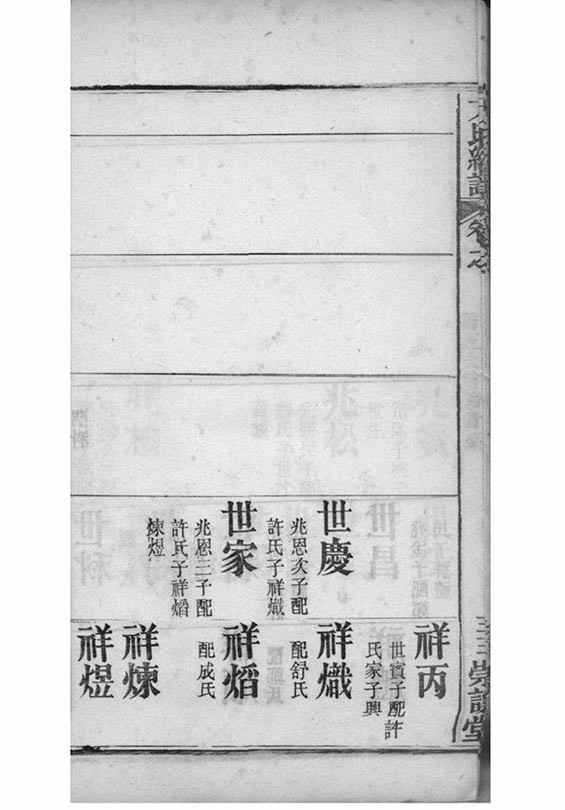 氏續譜
卷之
三三
崇誼堂
世慶
兆恩次子配
許氏子祥熾
世家
兆恩三子配
許氏子祥熖
煉煜
祥丙
世賓子配許
氏家子興
祥熾
配舒氏
祥熖
配成氏
祥煉
祥煜